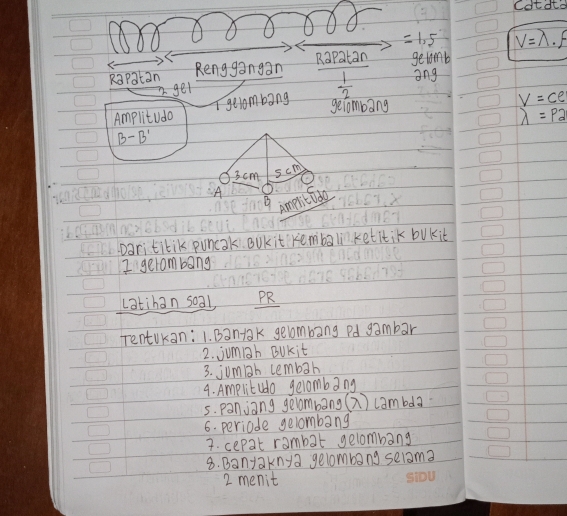 Rapatan Renggangan Rapatan = 1,5
gelomb
ang
1 gelombang
1/2
gelombang
Amplitudo
B-B'
3 cm 5 cm
A B C
Amplitudo
Dari titik puncak Bukit kembali ketitik bukit
1 gelombang
Latihan soal PR
Tentukan: 1. Banyak gelombang pd gambar
2. jumlah Bukit
3. jumlah lembah
4. Amplitudo gelombang
5. panjang gelombang (λ) Lambda
6. periode gelombang
7. cepat rambat gelombang
8. Banyaknya gelombang selama
2 menit
SIDU
V=λ.f
V = ce
λ = Pa